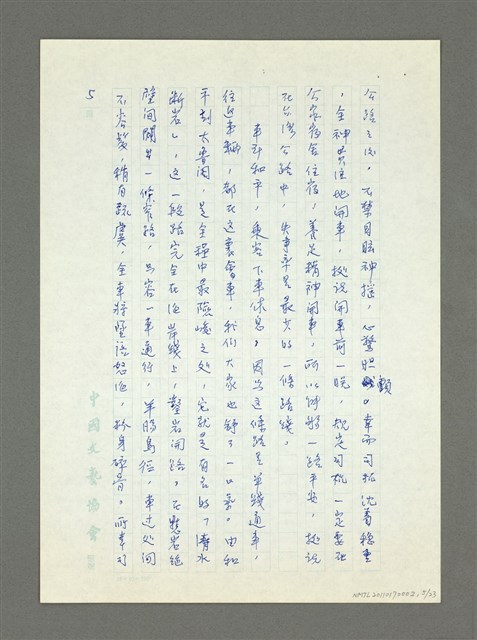 公路之後，不禁目眩神搖，心驚胆顫。幸而司机沈着穩重
，全神貫注地開車，据說開車前一晚，規定司机一定要在
公家宿舍住宿，養足精神開車，所以能够一路平安，据說
在台灣公路中，失事率是最少的一條路綫。
車到和平，乘客下車休息，因为这條路是单綫通車，
往返車輛，都在这裏會車，我们大家也舒了一口氣。由和
平到太魯閣，是全程中最險峻之处，它就是有名的「清水
断岩」，这一段路完全在海岸綫上，鑿岩開路，在懸岩絕
壁間闢出一條窄路，只容一車通行，羊腸鳥徑，車过处间
不容髮，稍有疏虞，全車將墜落怒海，粉身碎骨。所幸司
5
中國文藝協會
NMTL20110190002, 5/23